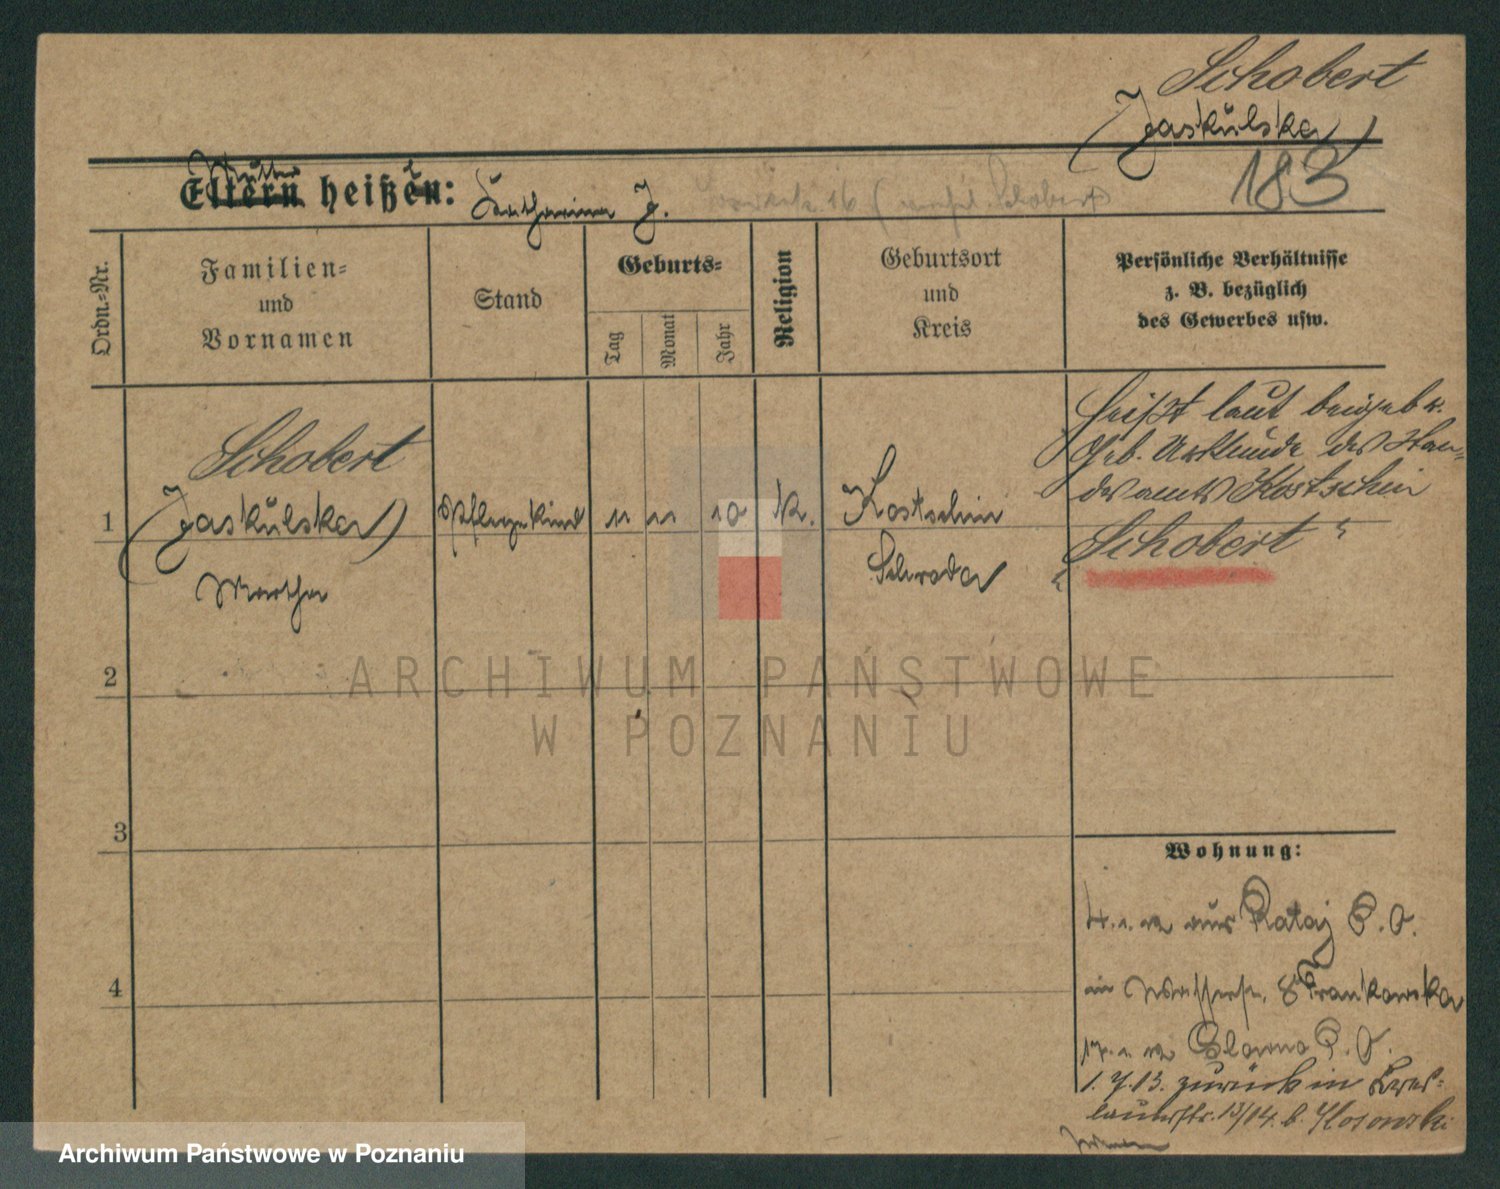 Schobert
(Jaskulska)
183
Mutter
Eltern heißen: Katharina J.
Ordn.-Nr.
Familien-
und
Vornamen
Stand
Geburts-
Tag
Monat
Jahr
Religion
Geburtsort
und
Kreis
Persönliche Verhältnisse
z. B. bezüglich
des Gewerbes usw.
1
Schobert
(Jaskulska)
Martha
Pflegekind
11
11
10
k.
Kostschin
Schroda
heißt laut beigeb.
Geb. Urkunde des Stan-
desamts Kostschin
"Schobert"
2
3
4
Wohnung:
4.1.12 aus Rataj P. O.
in 8 Frankowska
17.1.12 Glowno P. O.
1.7.13. zurück in Bres-
lauerstr. 13/14. b.
ARCHIWUM PAŃSTWOWE
W POZNANIU
Archiwum Państwowe w Poznaniu